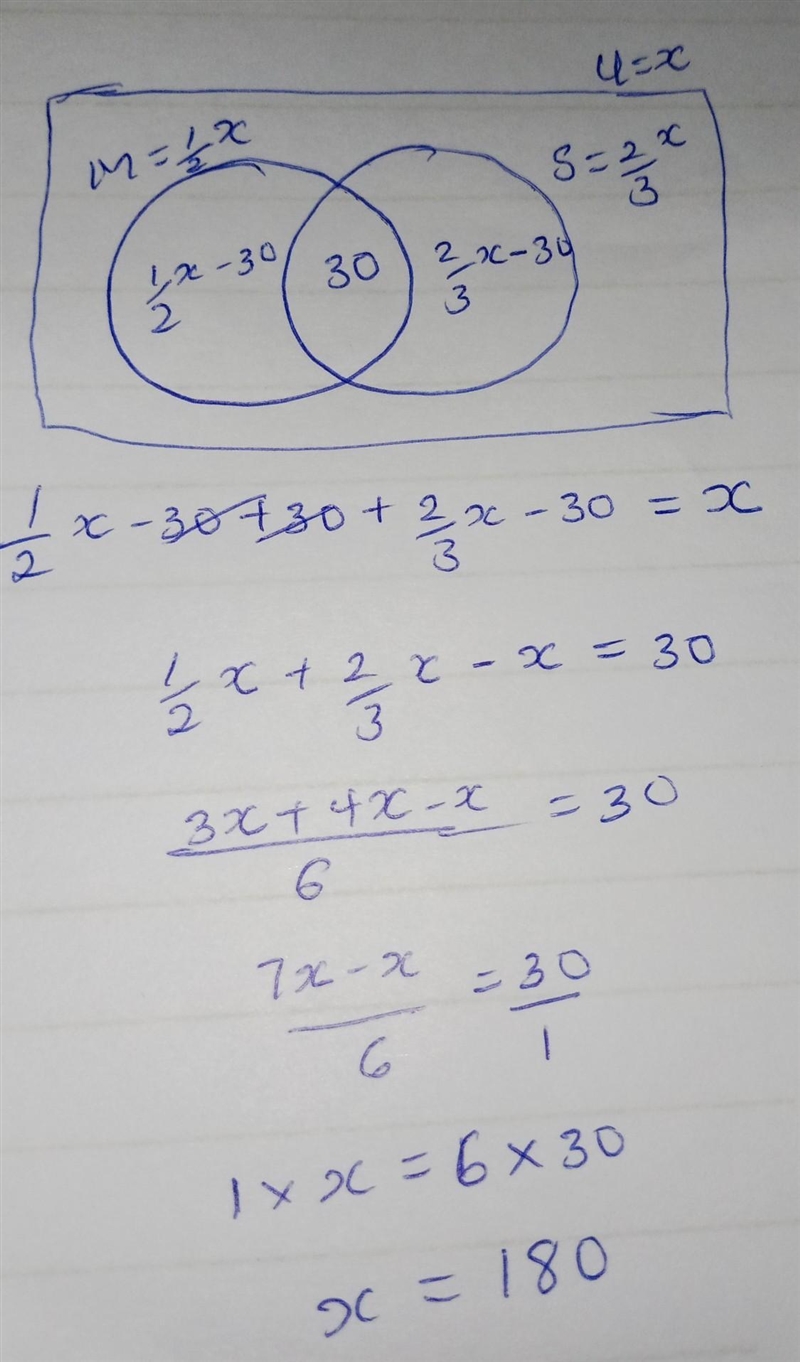 U=x
M = 1/2 x
S = 2/3 x
1/2 x - 30
30
2/3 x - 30
1/2 x - 30 + 30 + 2/3 x - 30 = x
1/2 x + 2/3 x - x = 30
3x + 4x - x / 6 = 30
7x - x / 6 = 30/1
1 × x = 6 × 30
x = 180